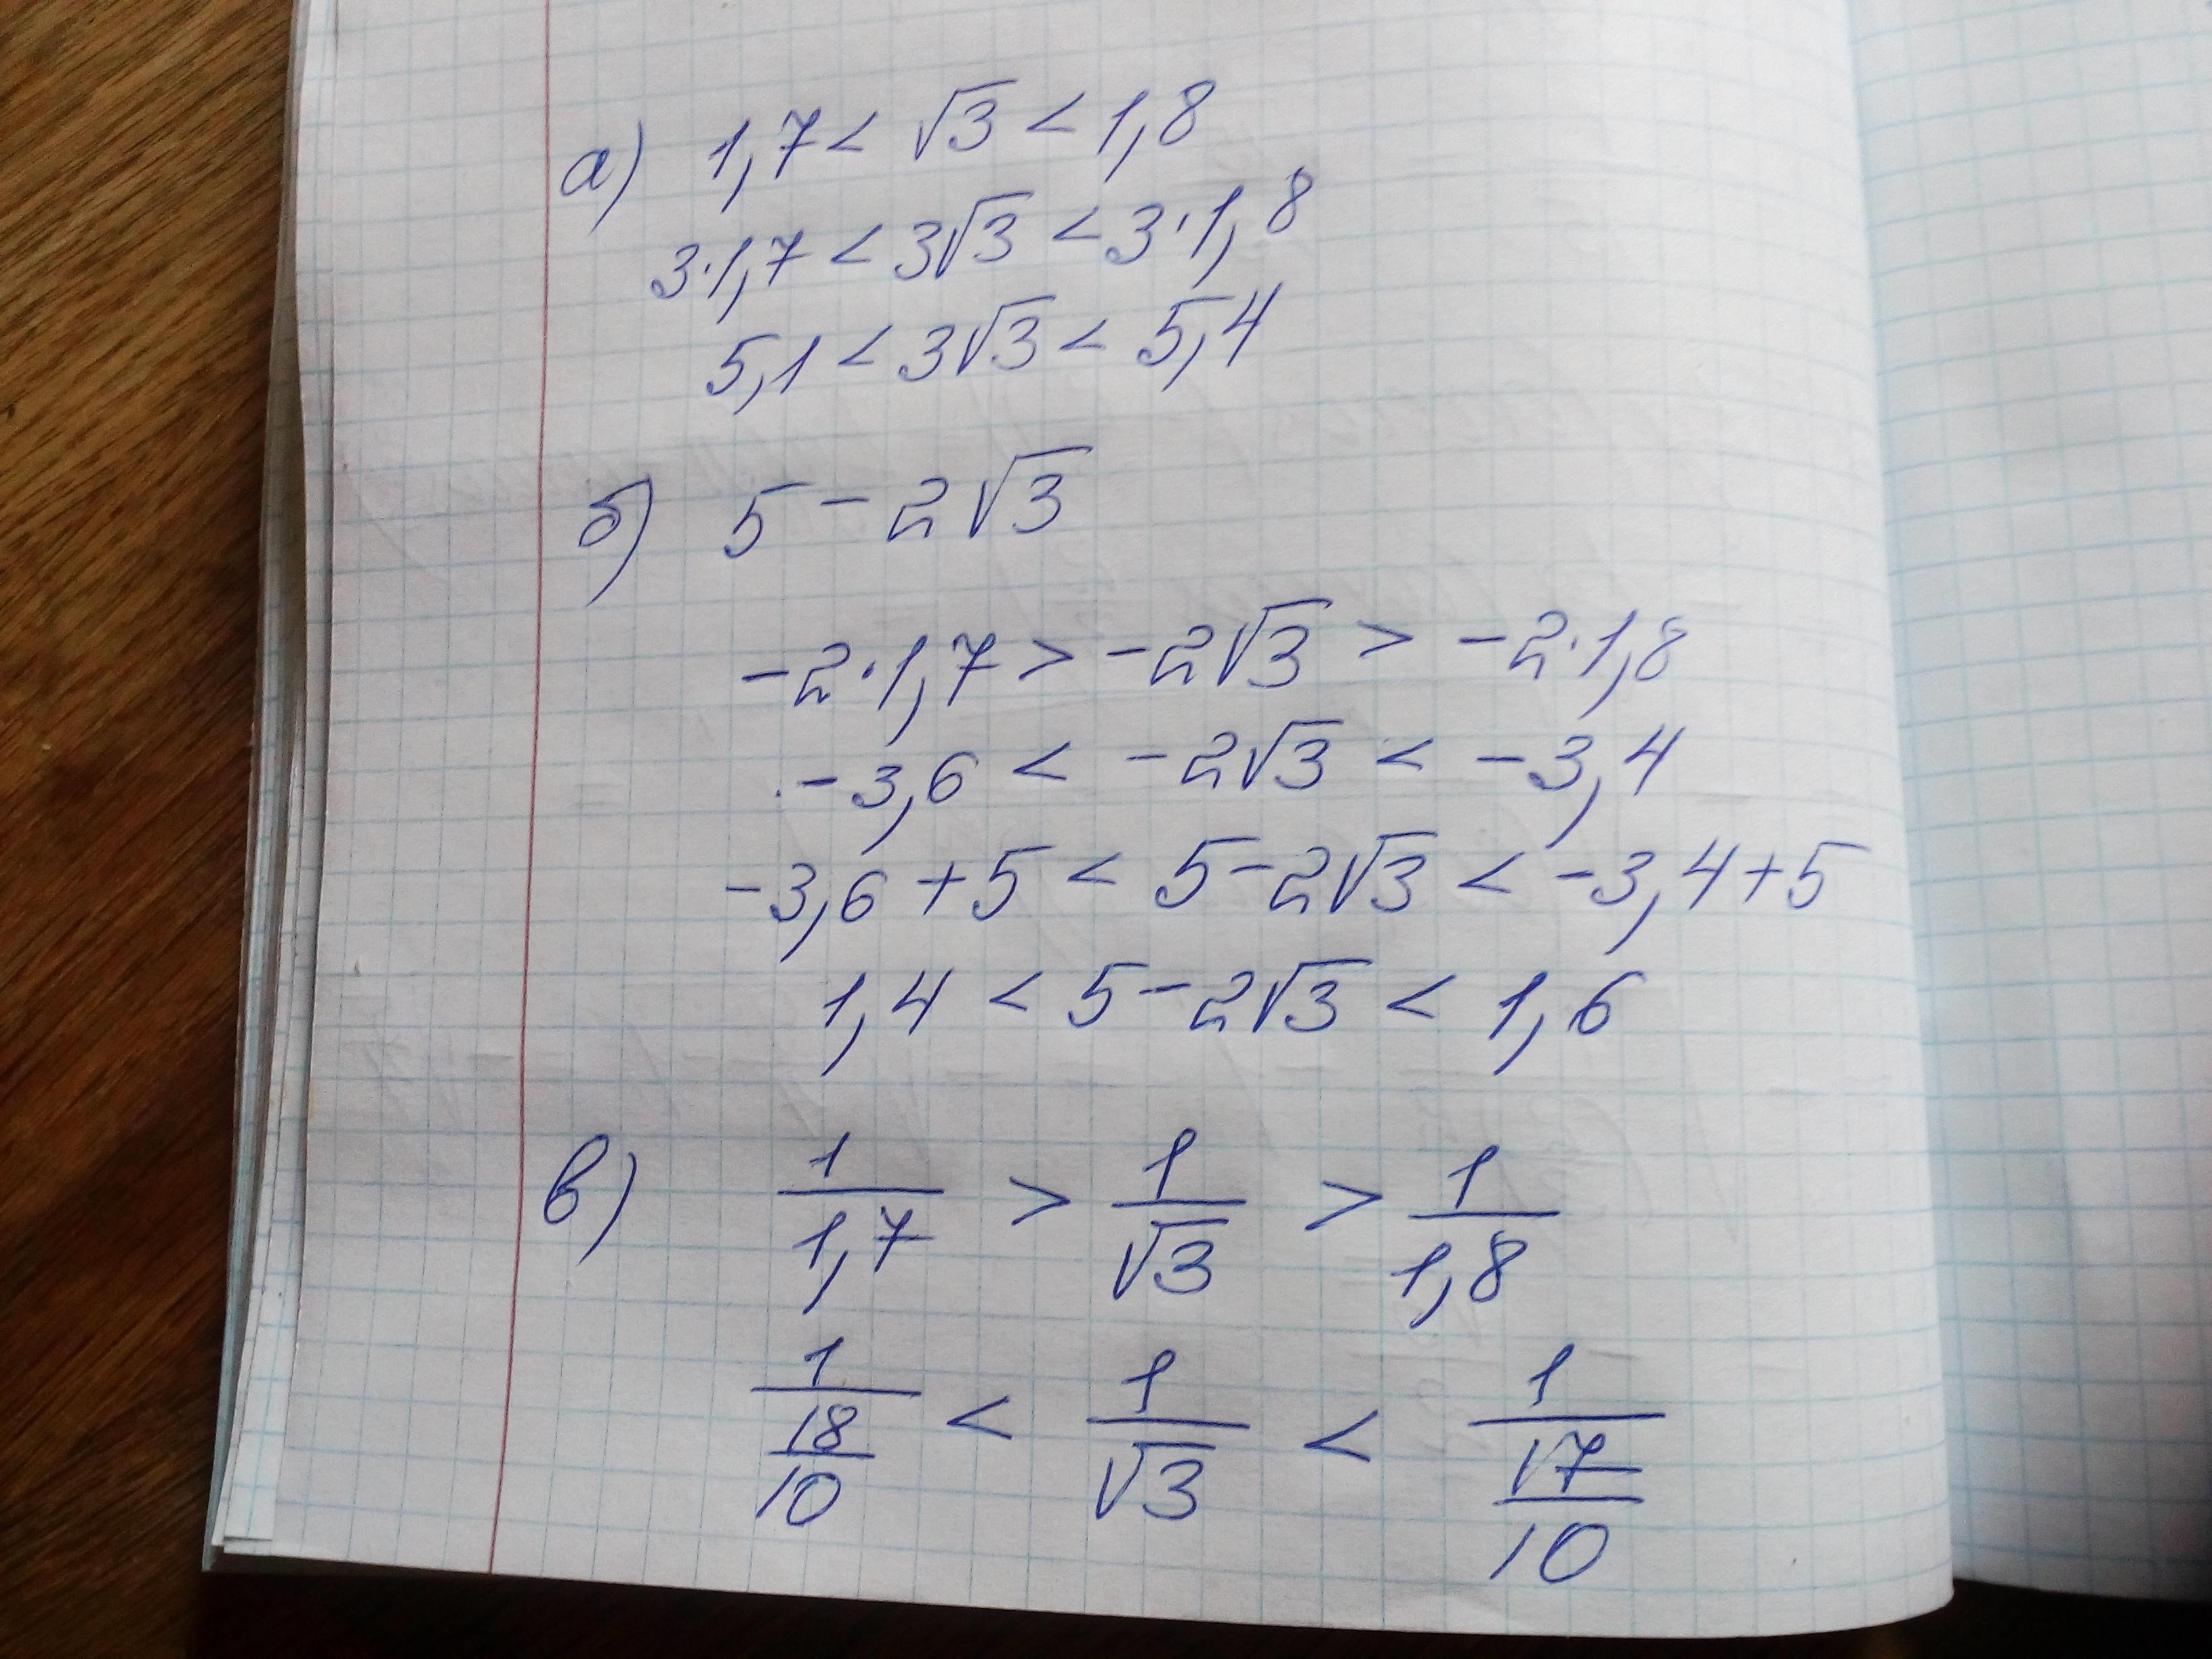 а) 1,7 < √3 < 1,8
3·1,7 < 3√3 < 3·1,8
5,1 < 3√3 < 5,4
б) 5 - 2√3
-2·1,7 > -2√3 > -2·1,8
-3,6 < -2√3 < -3,4
-3,6 + 5 < 5 - 2√3 < -3,4 + 5
1,4 < 5 - 2√3 < 1,6
в) 1/1,7 > 1/√3 > 1/1,8
1/(18/10) < 1/√3 < 1/(17/10)